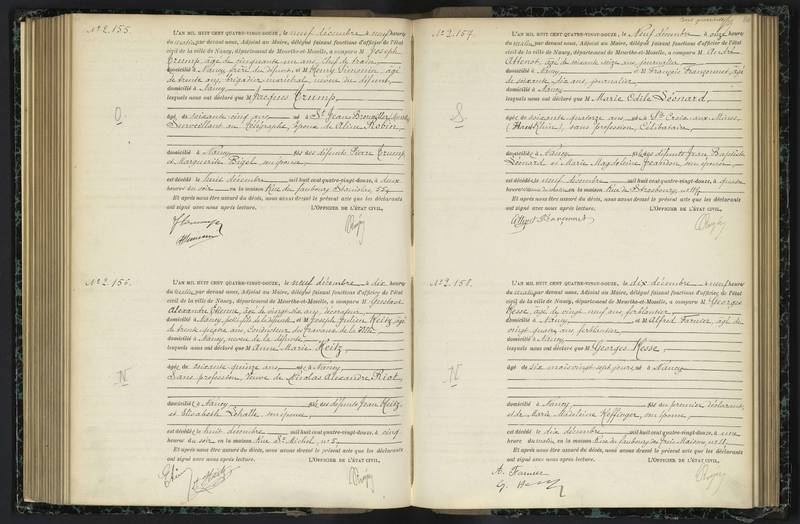 Nº 2.155.
L'AN MIL HUIT CENT QUATRE-VINGT-DOUZE, le neuf décembre à neuf heures
du matin par devant nous, Adjoint au Maire, délégué faisant fonctions d'officier de l'état
civil de la ville de Nancy, département de Meurthe-et-Moselle, a comparu M Joseph
Crump, âgé de cinquante un ans, Chef de train,
domicilié à Nancy, frère du défunt, et M Henry Simonin, âgé
de trente ans, neveu du défunt,
domicilié à Nancy
lesquels nous ont déclaré que M Jacques Crump,
âgé de soixante cinq ans, né à St Jean
Surveillant au Télégraphe, époux de Aline Robin,
domicilié à Nancy fils des défunts Pierre Crump
et Marguerite Bigel, son épouse,
est décédé le huit décembre mil huit cent quatre-vingt-douze, à deux
heures du soir en la maison Rue du faubourg Stanislas, 55
Et après nous être assuré du décès, nous avons dressé le présent acte que les déclarants
ont signé avec nous après lecture. L'OFFICIER DE L'ÉTAT CIVIL,
Nº 2.156.
L'AN MIL HUIT CENT QUATRE-VINGT-DOUZE, le neuf décembre à dix heures
du matin par devant nous, Adjoint au Maire, délégué faisant fonctions d'officier de l'état
civil de la ville de Nancy, département de Meurthe-et-Moselle, a comparu M Gustave
Alexandre Etienne, âgé de vingt six ans, décorateur,
domicilié à Nancy, petit fils de la défunte, et M Joseph Julien Keitz, âgé
de trente quatre ans, Conducteur des travaux de la Ville
domicilié à Nancy, neveu de la défunte
lesquels nous ont déclaré que M Anne Marie Keitz,
âgée de soixante quinze ans, née à Nancy
Sans profession, Veuve de Nicolas Alexandre Riot,
domiciliée à Nancy fille des défunts Jean Keitz
et Elisabeth Lehalle, son épouse,
est décédée le huit décembre mil huit cent quatre-vingt-douze, à cinq
heures du soir en la maison Rue St Michel, nº 5,
Et après nous être assuré du décès, nous avons dressé le présent acte que les déclarants
ont signé avec nous après lecture. L'OFFICIER DE L'ÉTAT CIVIL,
Nº 2.157.
L'AN MIL HUIT CENT QUATRE-VINGT-DOUZE, le Neuf décembre à onze heures
du matin par devant nous, Adjoint au Maire, délégué faisant fonctions d'officier de l'état
civil de la ville de Nancy, département de Meurthe-et-Moselle, a comparu M André
Attenot, âgé de soixante seize ans, journalier
domicilié à Nancy et M François Françonnet, âgé
de soixante dix ans, journalier
domicilié à Nancy
lesquels nous ont déclaré que M Marie Odile Léonard,
âgée de soixante quatorze ans, née à Ste Croix aux Mines,
(Haut Rhin), sans profession, Célibataire,
domiciliée à Nancy fille des défunts Jean Baptiste
Léonard et Marie Magdeleine Jeandon, son épouse,
est décédée le neuf décembre mil huit cent quatre-vingt-douze, à
heures du matin en la maison Rue de Strasbourg, nº
Et après nous être assuré du décès, nous avons dressé le présent acte que les déclarants
ont signé avec nous après lecture. L'OFFICIER DE L'ÉTAT CIVIL,
Nº 2.158.
L'AN MIL HUIT CENT QUATRE-VINGT-DOUZE, le dix décembre à neuf heures
du matin par devant nous, Adjoint au Maire, délégué faisant fonctions d'officier de l'état
civil de la ville de Nancy, département de Meurthe-et-Moselle, a comparu M Georges
Hesse, âgé de vingt neuf ans, ferblantier
domicilié à Nancy et M Alfred Farnier, âgé de
vingt ans, ferblantier
domicilié à Nancy
lesquels nous ont déclaré que M Georges Hesse,
âgé de dix mois vingt sept jours, né à Nancy
domicilié à Nancy fils du premier déclarant
et de Marie Madeleine Keffinger, son épouse,
est décédé le dix décembre mil huit cent quatre-vingt-douze, à une
heure du matin en la maison Rue du faubourg des Trois Maisons, nº
Et après nous être assuré du décès, nous avons dressé le présent acte que les déclarants
ont signé avec nous après lecture. L'OFFICIER DE L'ÉTAT CIVIL,
A. Farnier
G. Hesse